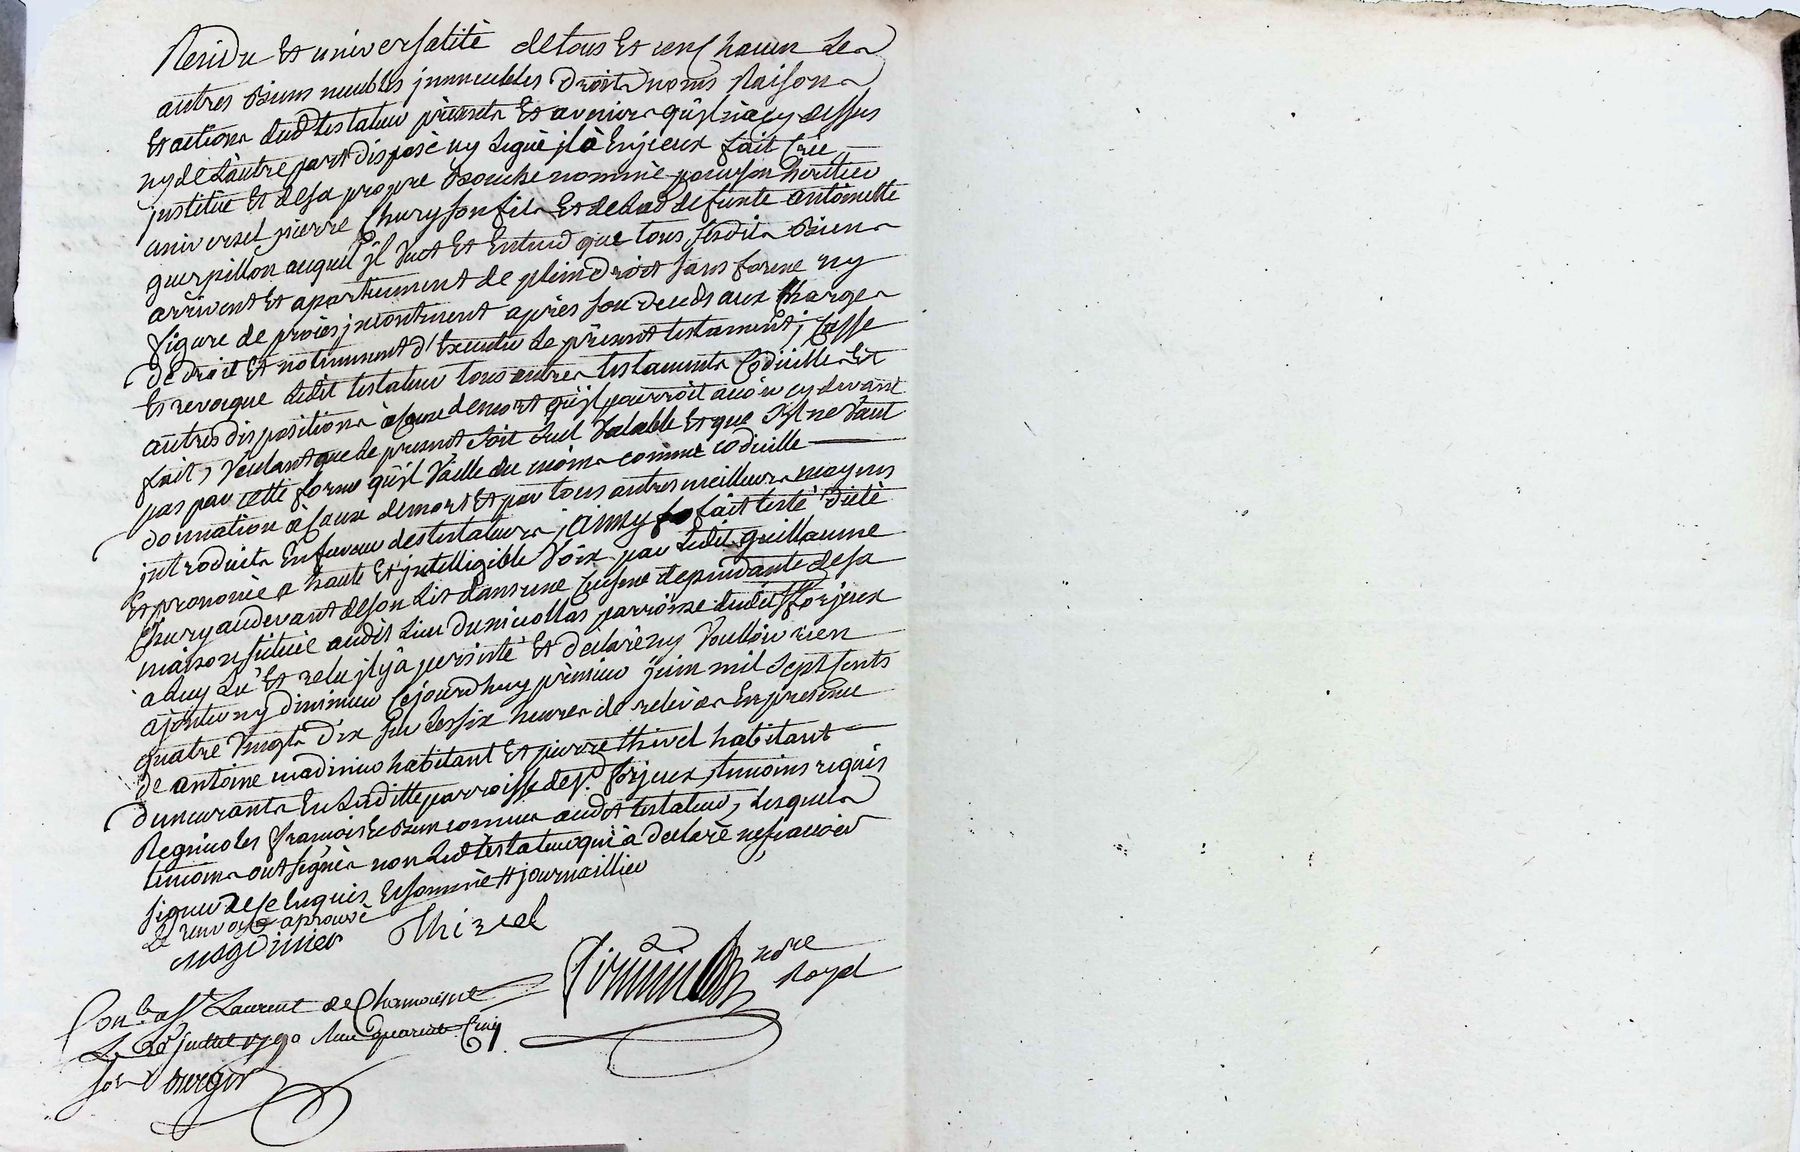 Residu et universalité de tous et un chacun ses
autres biens meubles immeubles droits noms raisons
et actions dud testateur présents et avenirs qu'il n'a cy dessus
ny de l'autre part disposé ny légué il a Enjeux fait crée
institué et de sa propre bouche nommé pour son héritier
universel pierre Chury son fils et de lad defunte antoinette
guerpillon auquel il veut et entend que tous sesdits biens
arrivent et apartiennent de plein droit sans forme ny
figure de procès incontinent après son decéds aux charges
de droit et notamment d'executer le présent testament; Casse
et revoque ledit testateur tous autres testaments Codicilles et
autres dispositions à Cause de mort qu'il pourroit avoir cy devant
fait, Voulant que le present soit seul Valable et que s'il ne Vaut
pas par cette forme qu'il Vaille du moins comme codicille
donnation à Cause de mort et par tous autres meilleurs moyens
introduits en faveur des testateurs; ainsy fait testé dicté
et prononcé a haute et intelligible Voix par ledit guillaume
Chury au devant de son lit dans une Cuisine dependante de sa
maison située audit lieu du nicollas parroisse dudit St forjeux
a luy lû et relu il y a persisté et déclaré ny Voulloir rien
ajouter ny diminuer Cejourdhuy premier juin mil sept cents
quatre Vingts dix sur les six heures de relevée En presence
de antoine madinier habitant et pierre thivel habitant
demeurants En ladite parroisse de St forjeux, temoins requis
Regnicoles françois et bien connus audt testateur, Lesquels
temoins ont signés non led testateur qui a declaré ne sçavoir
signer de ce Enquis et sommé # journaillier
Le renvoy aprouvé
magdinier Thivel
nore
Royal
Conlé a St Laurent de Chamousset
Le 26 juillet 1790 Reçu quarante Cinq
sols